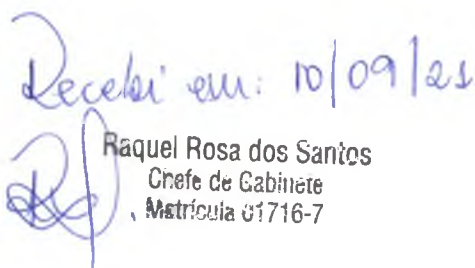 Recebi em: 10/09/21
Raquel Rosa dos Santos
Chefe de Gabinete
Matrícula 01716-7